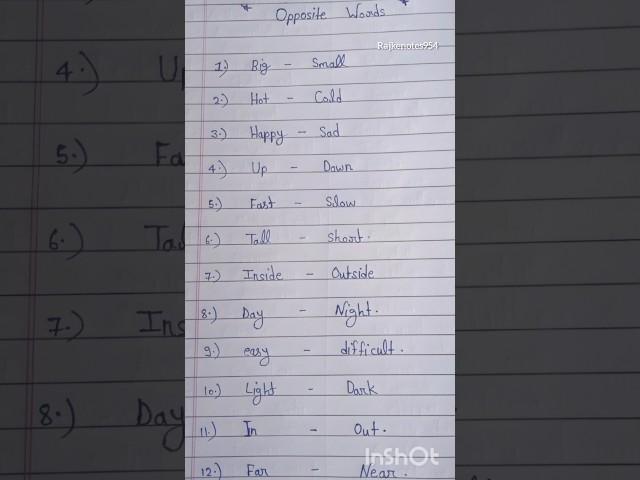 * Opposite Words *
Rajkenotes954
1.) Big - Small
2.) Hot - Cold
3.) Happy - Sad
4.) Up - Down
5.) Fast - Slow
6.) Tall - Short.
7.) Inside - Outside
8.) Day - Night.
9.) easy - difficult.
10.) Light - Dark
11.) In - Out.
12.) Far - Near.
InShOt
4.) Up
5.) Fa
6.) Ta
7.) Ins
8.) Day